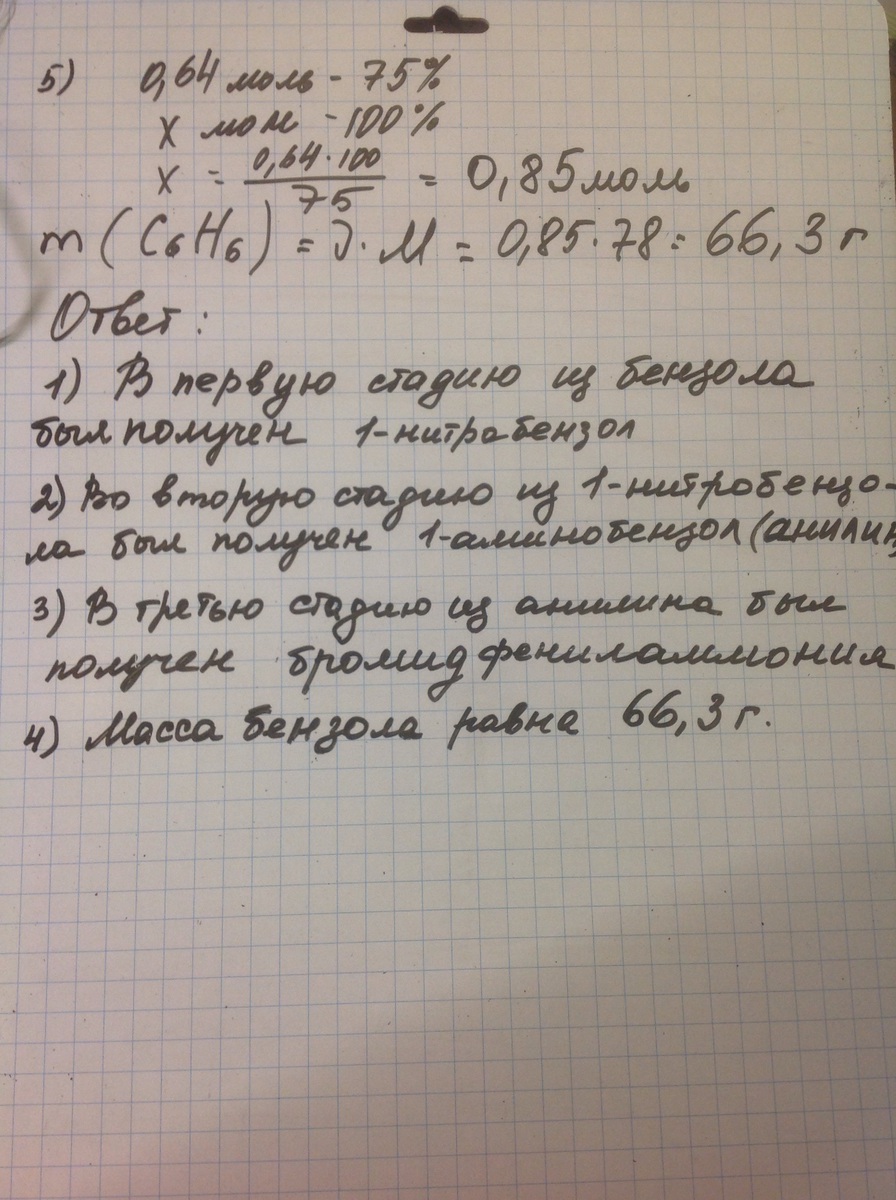 5) 0,64 моль - 75%
х моль - 100%
х = 0,64·100 / 75 = 0,85 моль
m (C₆H₆) = ν · M = 0,85·78 = 66,3 г
Ответ:
1) В первую стадию из бензола
был получен 1-нитробензол
2) Во вторую стадию из 1-нитробензо-
ла был получен 1-аминобензол (анилин)
3) В третью стадию из анилина был
получен бромид фениламмония
4) Масса бензола равна 66,3 г.